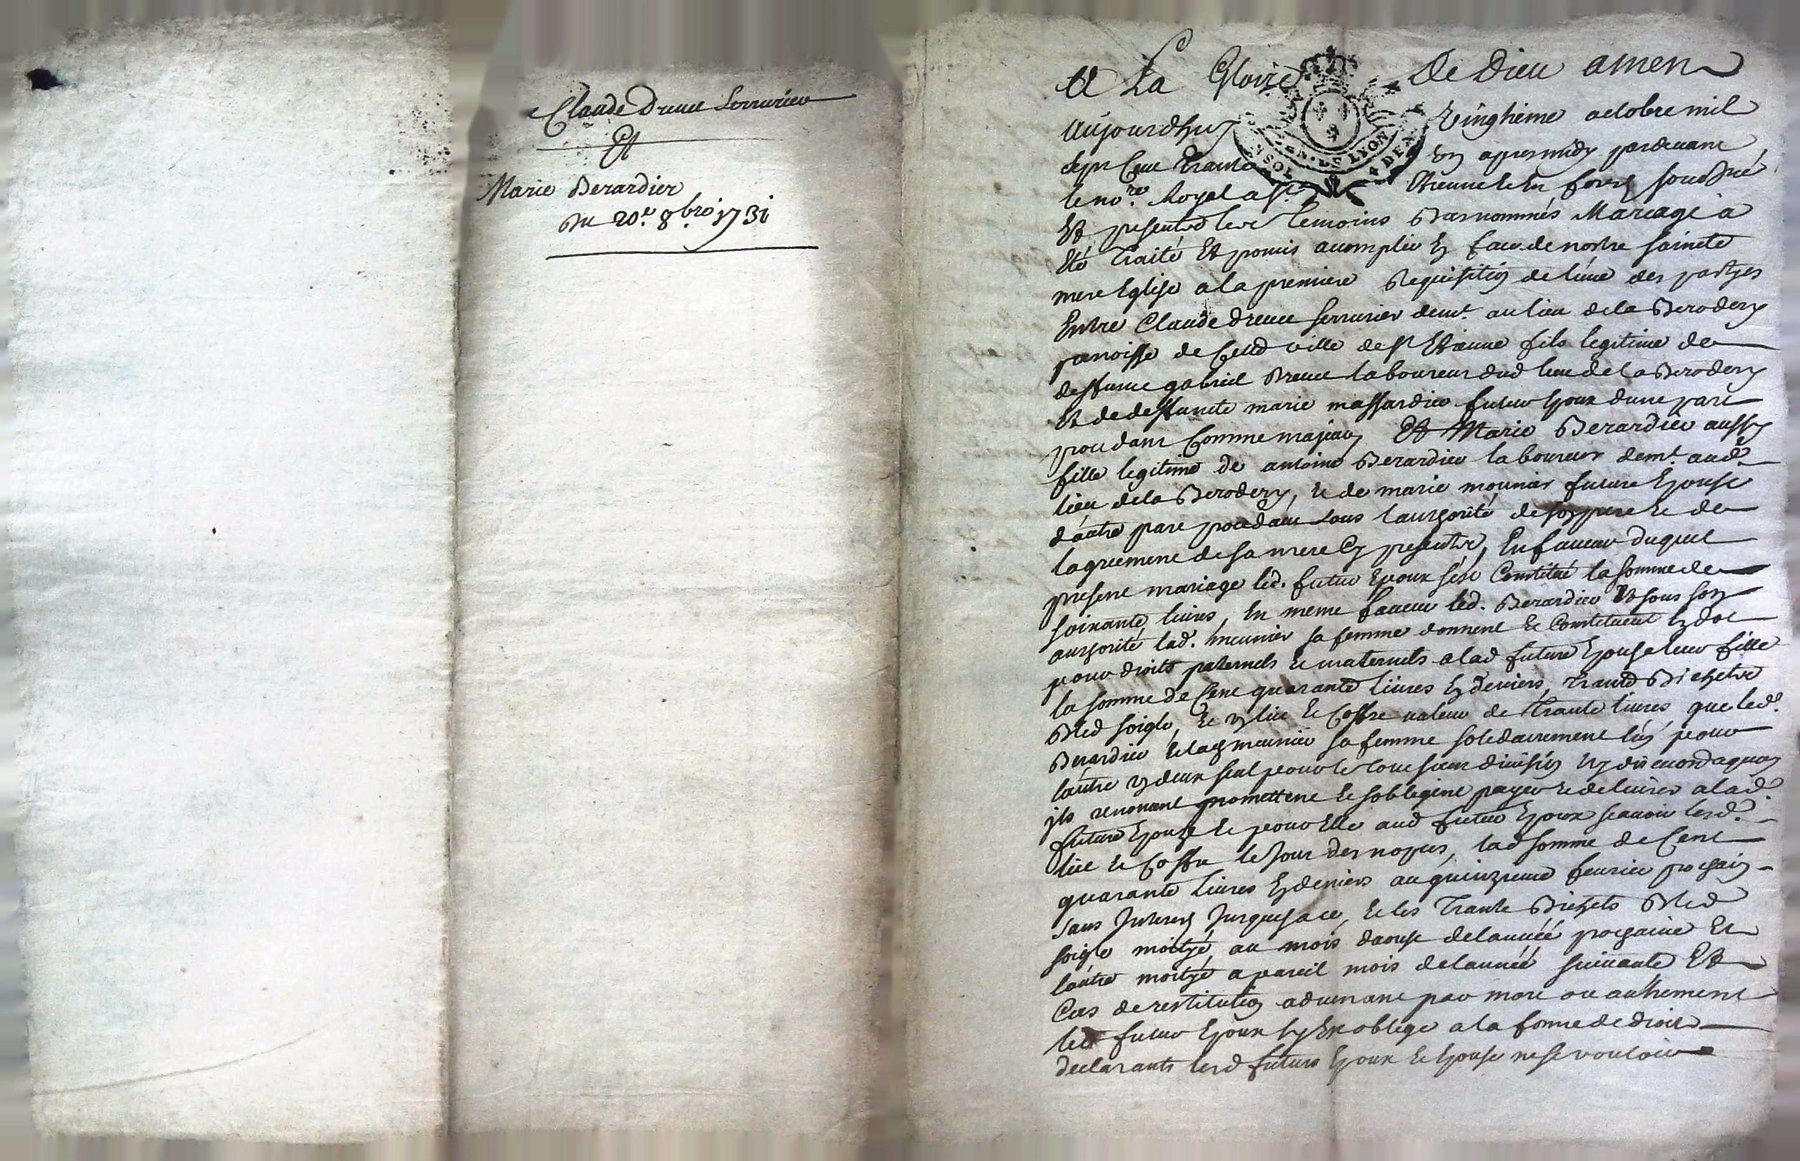 Claude Dreuet Serrurier
Et
Marie Berardier
Du 20.e 8bre 1731
A La Gloire De Dieu amen
Aujourdhuy vingtieme octobre mil
sept Cent Trante Un apres midy pardevant
le nore. Royal a St. Etienne
Et presents les temoins Basnommés Mariage a
été Traité Et promis acomplir En face de nostre sainte
mere Eglise a la premiere Requisition de l'une des partyes
Entre Claude dreuet serrurier demt au lieu de la Berodery
paroisse de Cetted ville de st Etienne fils legitime de
deffunt gabriel Dreuet laboureur dud lieu de la Berodery
Et de deffunte marie massardier futur Epoux dune part
procedant Comme majeur Et Marie Berardier aussy
fille legitime de antoine Berardier laboureur demt aud.
lieu de la Berodery, et de marie meunier future Epouse
dautre part procedant sous lauthorité de son pere et de
lagreement de sa mere Cy presents, En faveur duquel
present mariage led. futur Epoux s'est Constitué la somme de
soixante livres, En meme faveur led. Berardier Et sous son
authorité lad. meunier sa femme donnent et Constituent En dot
pour droits paternels et maternels a lad future Epouse leur fille
la somme de Cent quarante livres En deniers, Trante Bichets
Bled soigle, et un lit et Coffre valeur de Trante livres que led.
Berardier et lad meunier sa femme solidairement l'un pour
lautre un deux seul pour le tout sans division ny discution a quoy
ils renonent promettent et soblegent payer et delivrer a lad.
future Epouse et pour elle aud futur Epoux scavoir lesd.
lit et Coffre le Jour des nopces, lad somme de Cent
quarante livres En deniers au quinzieme fevrier prochain
sans Interest Jusques a ce, et les Trante Bichets Bled
soigle moityé au mois daoust de lannée prochaine Et
lautre moityé a pareil mois de lannée suivante Et
Cas de restitution advenant par mort ou autrement
led futur Epoux sy Est oblege a la forme de droit
declarants lesd futurs Epoux et Epouse ne se vouloir